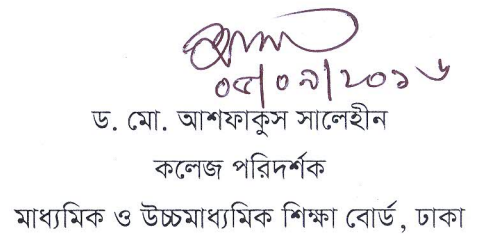 ০৫/০৯/২০১৬
ড. মো. আশফাকুস সালেহীন
কলেজ পরিদর্শক
মাধ্যমিক ও উচ্চমাধ্যমিক শিক্ষা বোর্ড, ঢাকা